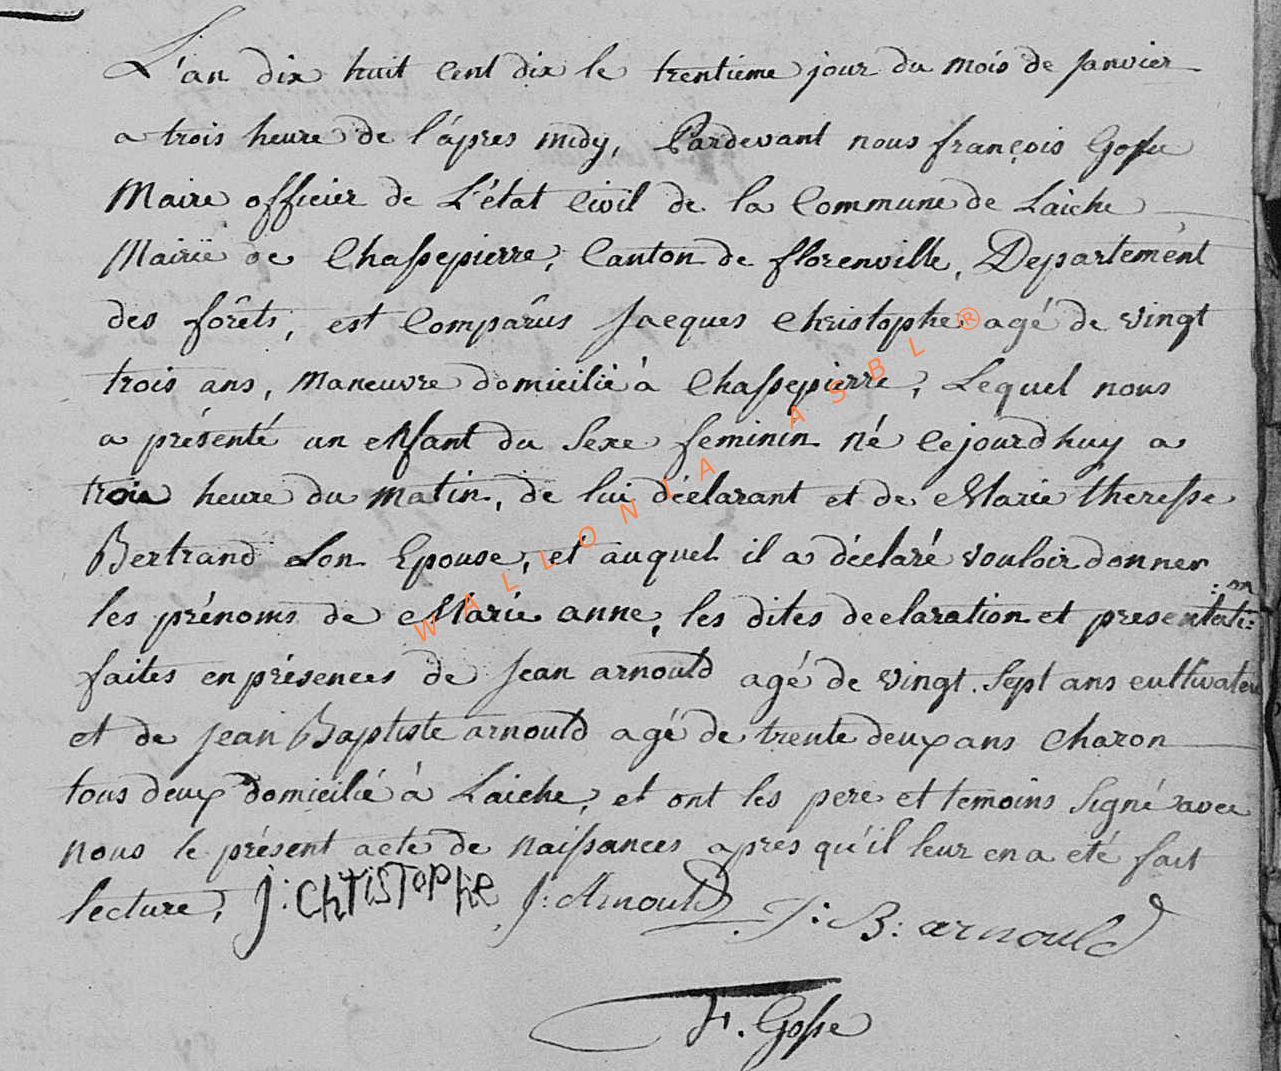 L'an dix huit cent dix le trentieme jour du mois de Janvier
a trois heure de l'ápres midy, Pardevant nous françois Gosse
Maire officier de L'état Civil de la Commune de Laiche
Mairie de Chassepierre, Canton de florenville, Departement
des forêts, est Comparûs Jacques christophe agé de vingt
trois ans, maneuvre domicilié à Chassepierre, Lequel nous
a présenté un enfant du Sexe feminin né cejourdhuy a
trois heure du matin, de lui déclarant et de Marie theresse
Bertrand Son Epouse, et auquel il a déclaré vouloir donner
les prénoms de Marie anne, les dites declaration et presentati:
:on
faites en présences de Jean arnould agé de vingt Sept ans cultivateur
et de Jean Baptiste arnould agé de trente deux ans Charon
tous deux domicilié à Laiche, et ont les pere et temoins Signé avec
nous le présent acte de naissances apres qu'il leur en a eté fait
lecture, J: CHRISTOPHE J: Arnould J: B: arnould
F. Gosse
WALLONIA ASBL®